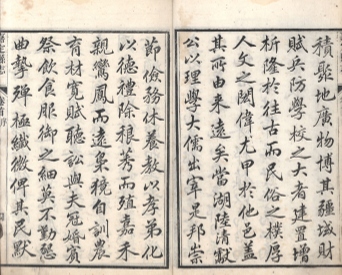 積聚地廣物博其疆域財
賦兵防學校之大者建置增
析隆於往古而民俗之樸厚
人文之閎偉尤甲於他邑蓋
其所由來遠矣當湖陸清獻
公以理學大儒出宰是邦崇
節儉務休養教以孝弟化
以德禮除稂莠而殖嘉禾
親鸞鳳而遠梟稅自訓農
育材寬賦聽訟與夫冠婚賓
祭飲食服御之細莫不勤懇
曲摯殫極纖微俾其民默